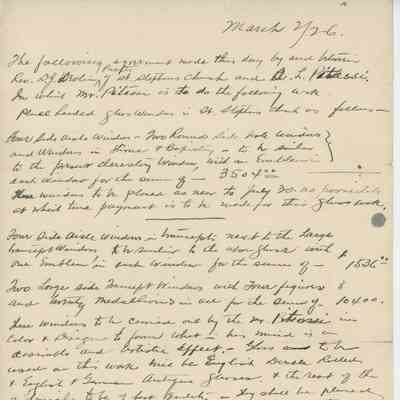 March 2/26.
The following agreement made this day by and between
Rev. D.J. Broling Pastor of St. Stephens Church and L. Pitassi.
In which Mr. Pitassi is to do the following work
Place leaded glass windows in St. Stephens Church as follows—
Four Side Aisle Windows — Two Round Side windows
and Windows in & Baptistry — to be similar
to the present decorating windows with an Emblem in
each window for the sum of — 350 4.00
These windows to be placed as near to July 30 as possible
at which time payment is to be made for this glass work.
Four Side Aisle Windows in transepts next to the large
transept windows to be similar to the above glass with
one Emblem in each window for the sum of — $1536.00
Two Large side transept windows with Four figures &
and twenty Medallions in all for the sum of — $10400.
These windows to be carried out by the Mr Pitassi in
Color & Design to form what — his mind is a
desirable and Artistic Effect — Glass to be
used in this work will be English Double Rolled
& English & German Antique Glasses. & the rest of the
to be of best quality — They shall be placed